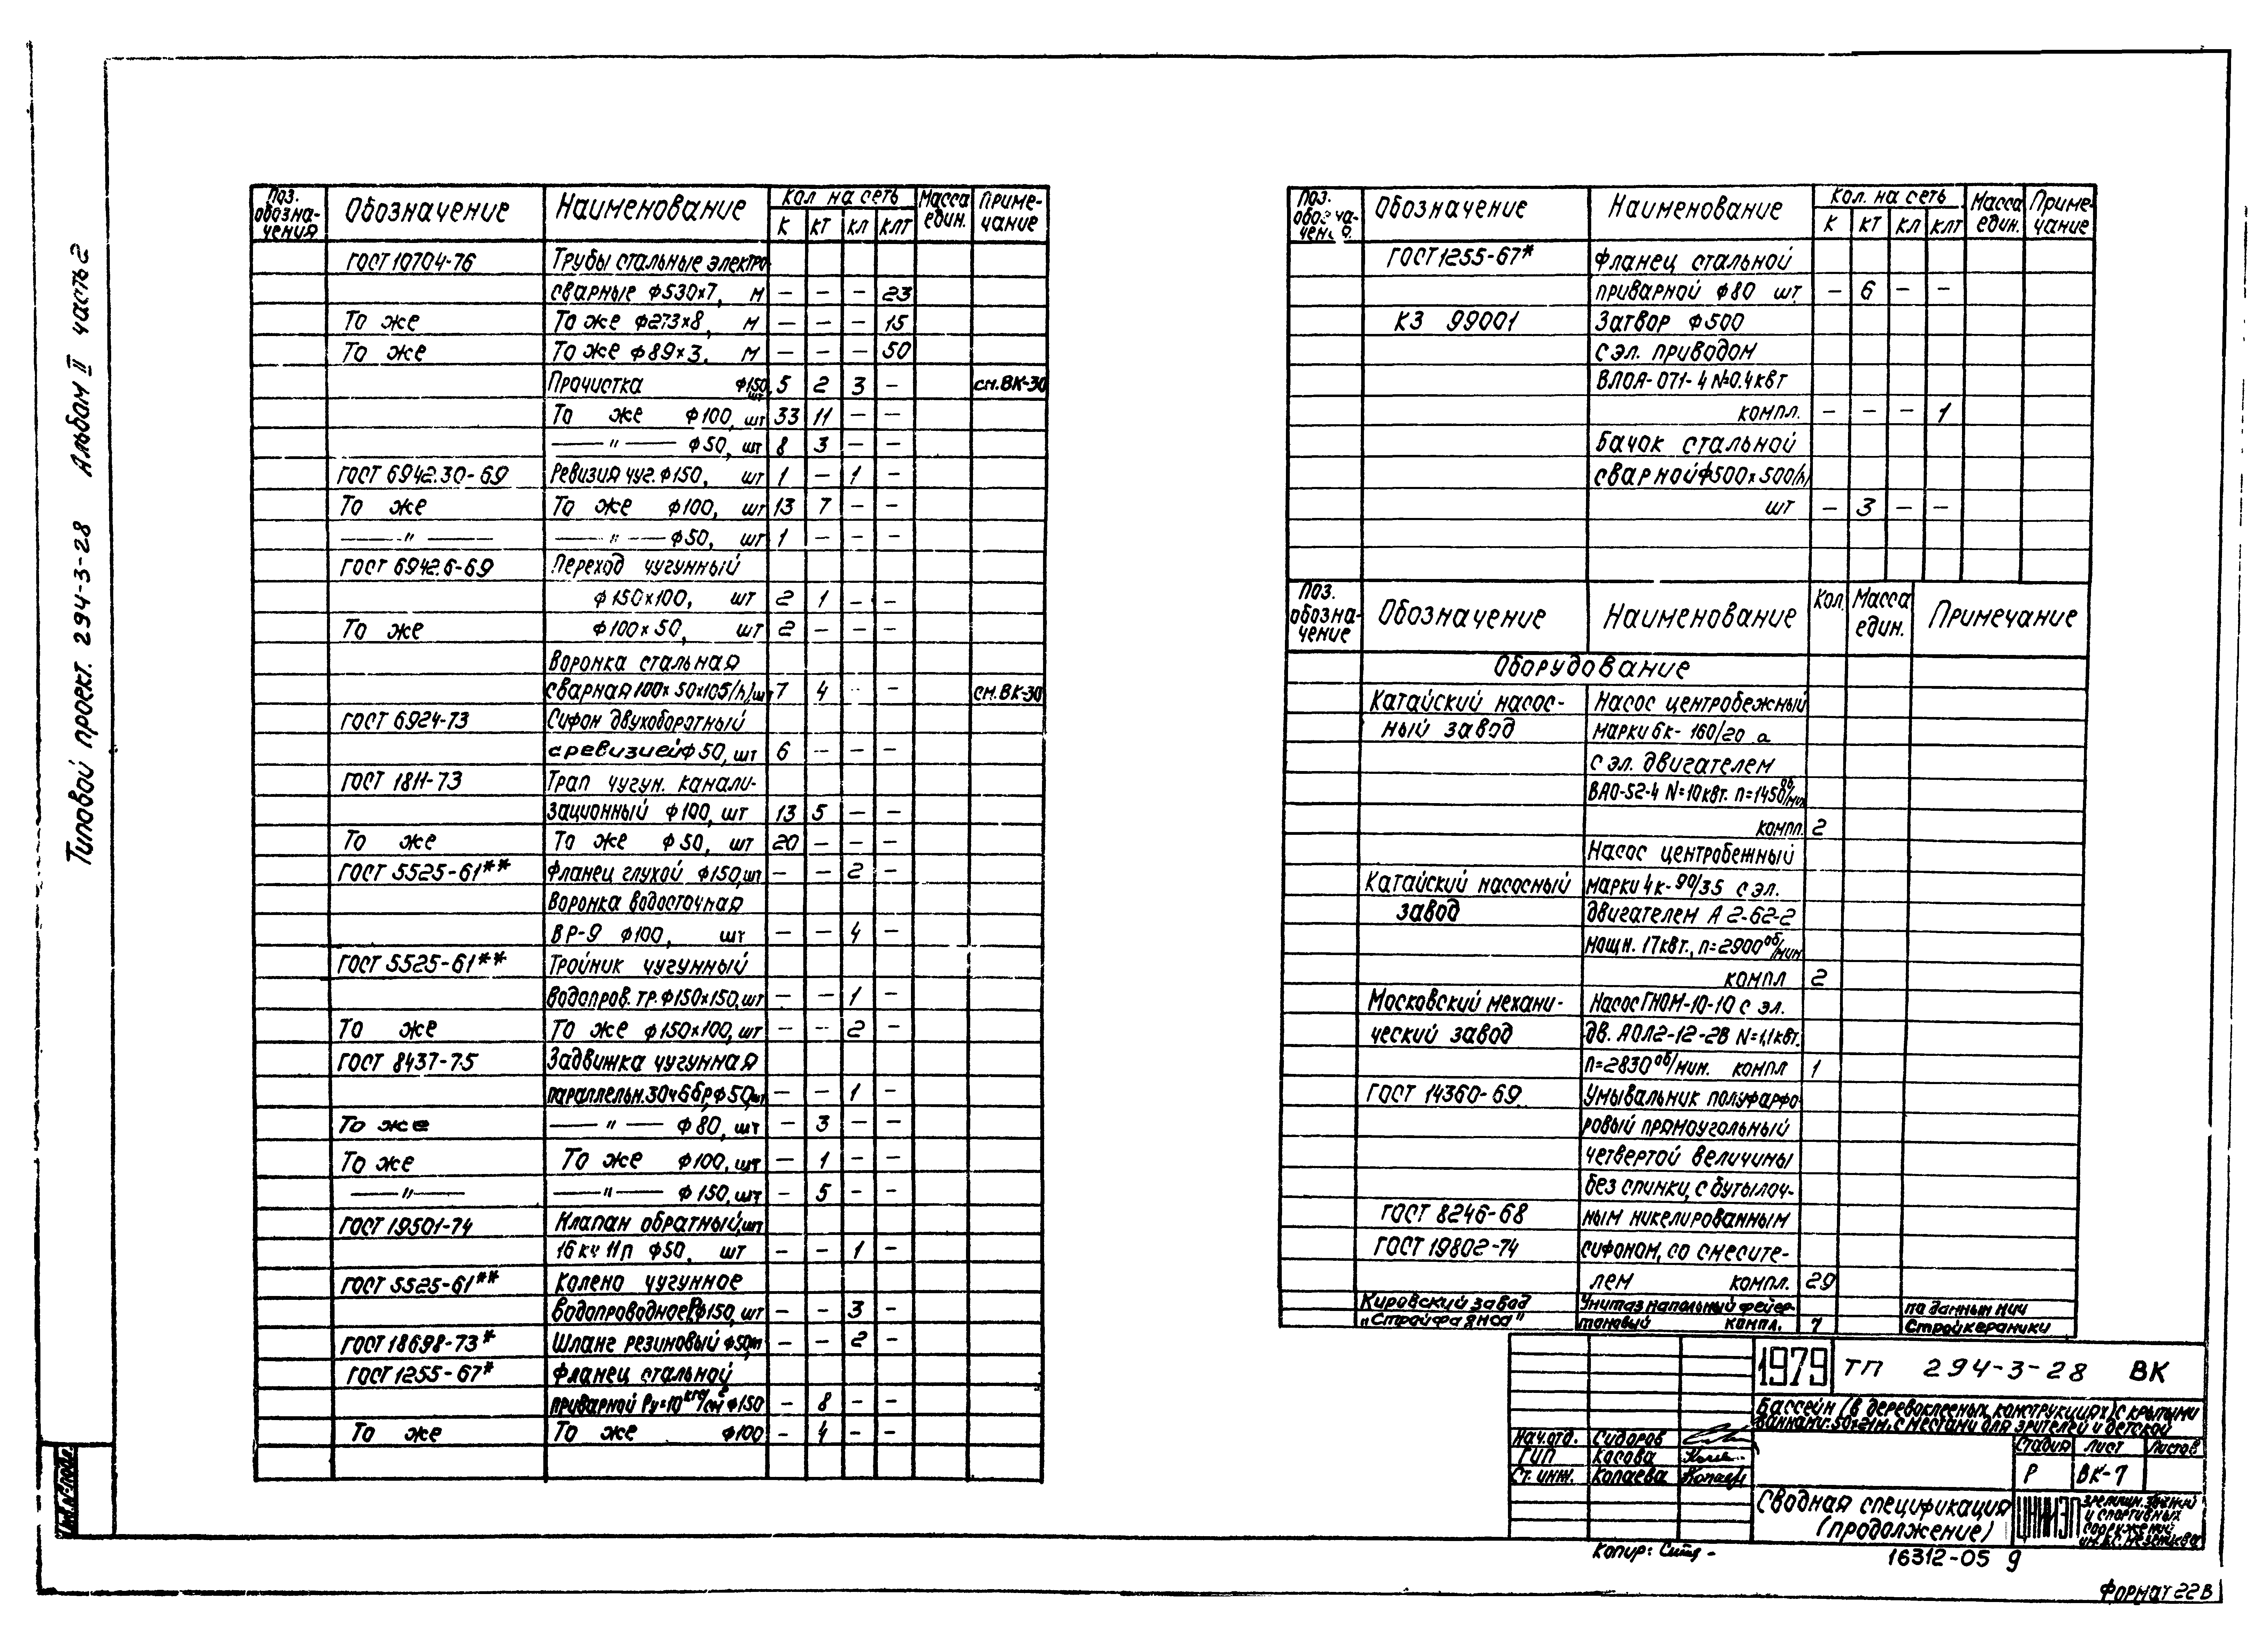 Типовой проект. 294-3-28 Альбом II часть 2
Поз. обозна- чения Обозначение Наименование Кол. на сеть Масса един. Приме- чание
К КТ КЛ КЛТ
ГОСТ 10704-76 Трубы стальные электро
сварные ф530х7, м — — — 23
То же То же ф273х8, м — — — 15
То же То же ф89х3. м — — — 50
Прочистка ф150, шт 5 2 3 — см.ВК-30
То же ф100, шт 33 11 — —
—"— ф50, шт 8 3 — —
ГОСТ 6942.30-69 Ревизия чуг. ф150, шт 1 — 1 —
То же То же ф100, шт 13 7 — —
—"— —"— ф50, шт 1 — — —
ГОСТ 6942.6-69 Переход чугунный
ф150х100, шт 2 1 — —
То же ф100х50, шт 2 — — —
Воронка стальная
сварная 100х50х105(h),шт 7 4 — — см.ВК-30
ГОСТ 6924-73 Сифон двухоборотный
с ревизией ф50, шт 6 — — —
ГОСТ 1811-73 Трап чугун. канали-
зационный ф100, шт 13 5 — —
То же То же ф50, шт 20 — — —
ГОСТ 5525-61** Фланец глухой ф150,шт — — 2 —
Воронка водосточная
ВР-9 ф100, шт — — 4 —
ГОСТ 5525-61** Тройник чугунный
водопров. тр. ф150х150,шт — — 1 —
То же То же ф150х100,шт — — 2 —
ГОСТ 8437-75 Задвижка чугунная
параллельн. 30ч6бр, ф50,шт — — 1 —
То же —"— ф80, шт — 3 — —
То же То же ф100, шт — 1 — —
—"— —"— ф150, шт — 5 — —
ГОСТ 19501-74 Клапан обратный,шт
16кч11п ф50, шт — — 1 —
ГОСТ 5525-61** Колено чугунное
водопроводное ф150, шт — — 3 —
ГОСТ 18698-73* Шланг резиновый ф50,м — — 2 —
ГОСТ 1255-67* Фланец стальной
приварной Ру=10кгс/см² ф150 — 8 — —
То же То же ф100 — 4 — —
Поз. обозна- чения Обозначение Наименование Кол. на сеть Масса един. Приме- чание
К КТ КЛ КЛТ
ГОСТ 1255-67* Фланец стальной
приварной ф80 шт — 6 — —
КЗ 99001 Затвор ф500
с эл. приводом
ВЛОА-071-4 N=0.4квт
компл. — — — 1
Бачок стальной
сварной ф500х500(h)
шт — 3 — —
Поз. обозна- чение Обозначение Наименование Кол. Масса един. Примечание
Оборудование
Катайский насос- Насос центробежный
ный завод марки 6к-160/20 а
с эл. двигателем
ВАО-52-4 N=10квт. n=1450об/мин
компл. 2
Насос центробежный
Катайский насосный марки 4к-90/35 с эл.
завод двигателем А2-62-2
мощн. 17квт., n=2900об/мин
компл 2
Московский механи- Насос ГНОМ-10-10 с эл.
ческий завод дв. АОЛ2-12-2В N=1,1квт.
n=2830об/мин. компл 1
ГОСТ 14360-69. Умывальник полуфарфо-
ровый прямоугольный
четвертой величины
без спинки, с бутылоч-
ГОСТ 8246-68 ным никелированным
ГОСТ 19802-74 сифоном, со смесите-
лем компл. 29
Кировский завод Унитаз напольный фейер- по данным НИИ
"Стройфаянса" танковый компл. 7 Стройкерамики
1979 ТП 294-3-28 ВК
Бассейн (в деревоклееных конструкциях) с крытыми
ваннами: 50х21м. с местами для зрителей и детской
Нач.отд. Сидоров
ГИП Косова
Ст. инж. Копаева
Стадия Лист Листов
Р ВК-7
Сводная спецификация
(продолжение)
ЦНИИЭП зрелищн. зданий
и спортивных
сооружений
им. Б.С. Мезенцева
Копир:
16312-05 9
Формат 22В
Инв.№ подл.